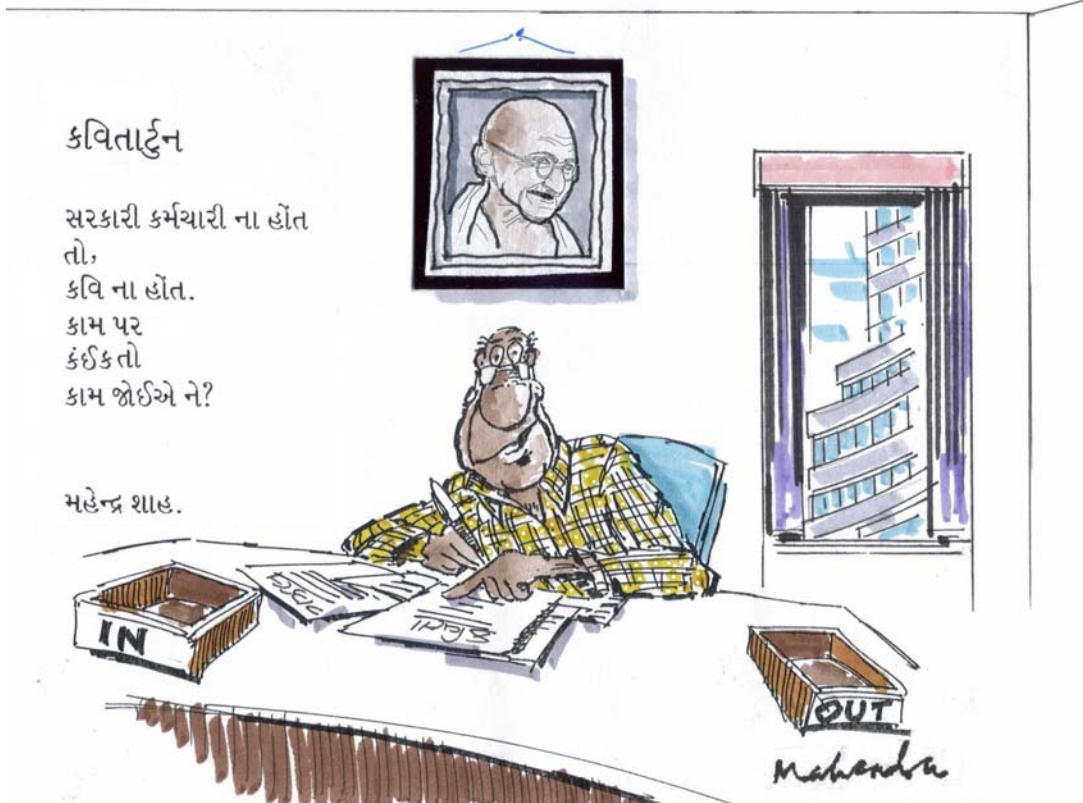 કવિતાર્ટુન
સરકારી કર્મચારી ના હોંત
તો,
કવિ ના હોંત.
કામ પર
કંઈક તો
કામ જોઈએ ને?
મહેન્દ્ર શાહ.
ગઝલ
કવિતા
IN
OUT
Mahendra